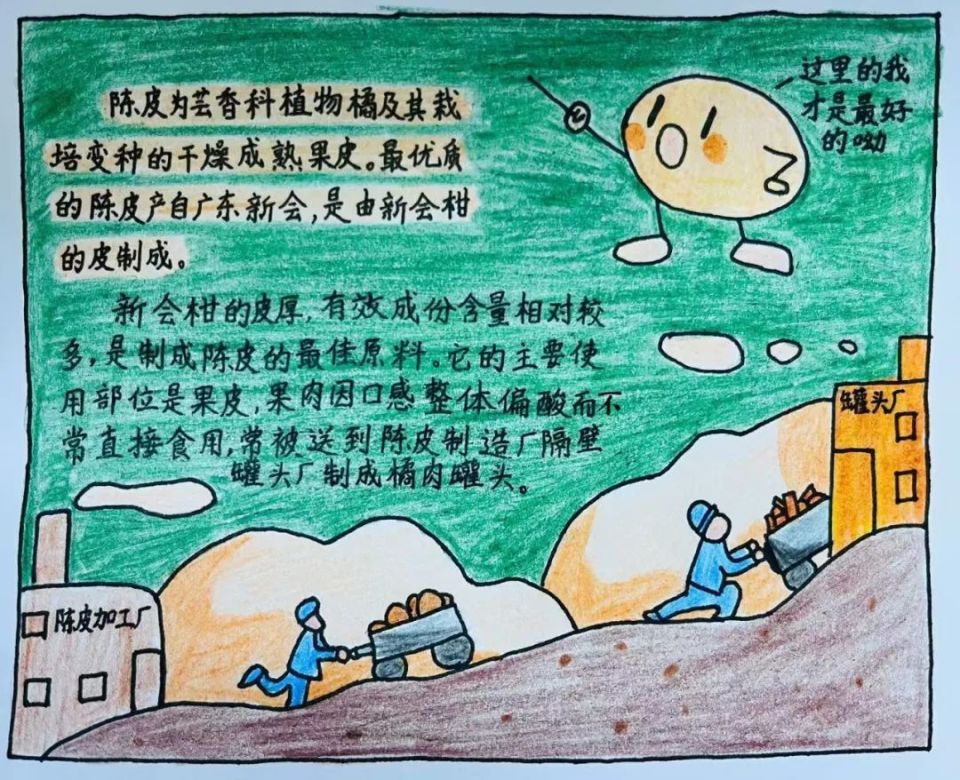 陈皮为芸香科植物橘及其栽
培变种的干燥成熟果皮。最优质
的陈皮产自广东新会,是由新会柑
的皮制成。
这里的我
才是最好
的呦
新会柑的皮厚,有效成份含量相对较
多,是制成陈皮的最佳原料。它的主要使
用部位是果皮,果肉因口感整体偏酸而不
常直接食用,常被送到陈皮制造厂隔壁
罐头厂制成橘肉罐头。
罐头厂
陈皮加工厂